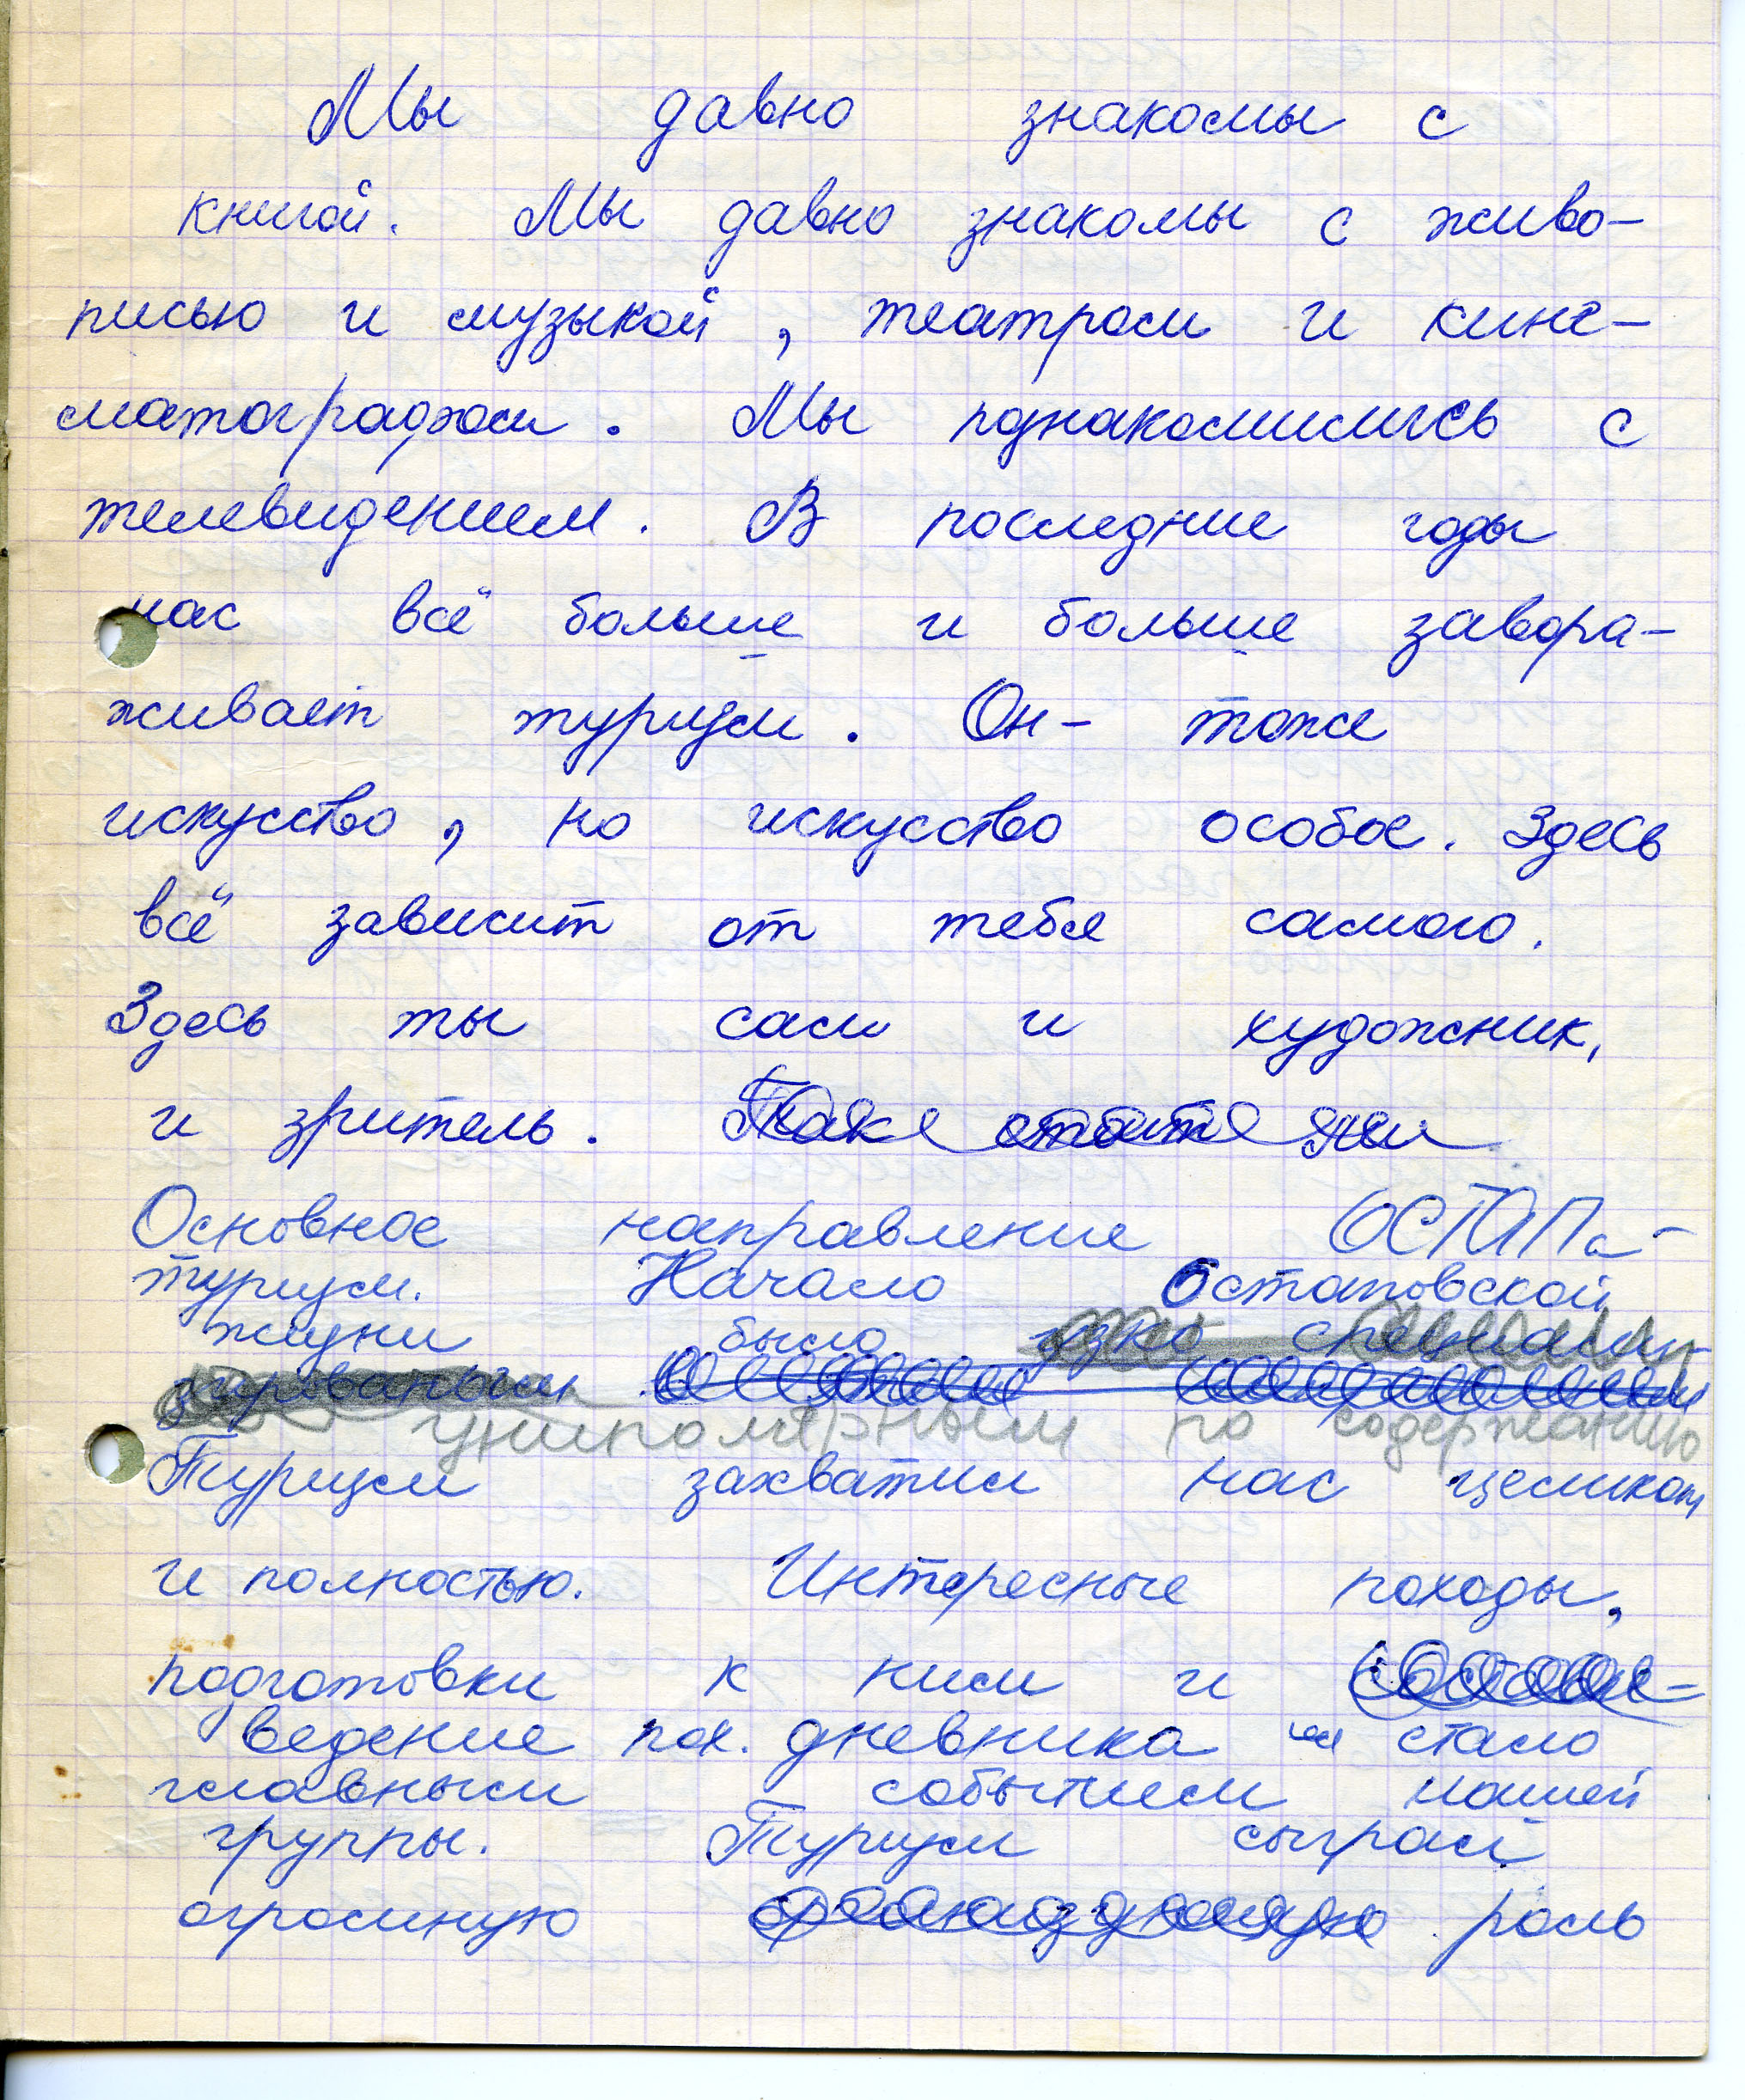 Мы давно знакомы с
книгой. Мы давно знакомы с живо-
писью и музыкой, театром и кине-
матографом. Мы познакомились с
телевидением. В последние годы
нас всё больше и больше завора-
живает туризм. Он- тоже
искусство, но искусство особое. Здесь
всё зависит от тебя самого.
Здесь ты сам и художник,
и зритель. Так
Основное направление ОСТАПа-
туризм. Начало Остаповской
жизни было узко специали-
зированным
униполярным по содержанию
Туризм захватил нас целиком
и полностью. Интересные походы,
подготовки к ним и
ведение пох. дневника стало
главным событием нашей
группы. Туризм сыграл
огромную роль